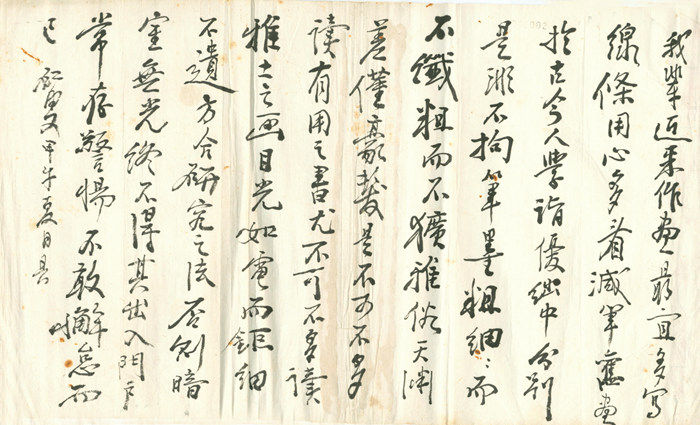 我輩近来作画最宜多寫
線條用心多看減筆舊画
於古今人學詣優絀中分別
是非不拘筆墨粗細細而
不纖粗而不獷雅俗天淵
差僅豪髮是不可不多
讀有用之書尤不可不多讀
雅士之画目光如電而鉅細
不遺方合研究之法否則暗
室無光終不得其出入門户
常存警惕不敢懈怠而
已 甲午夏日